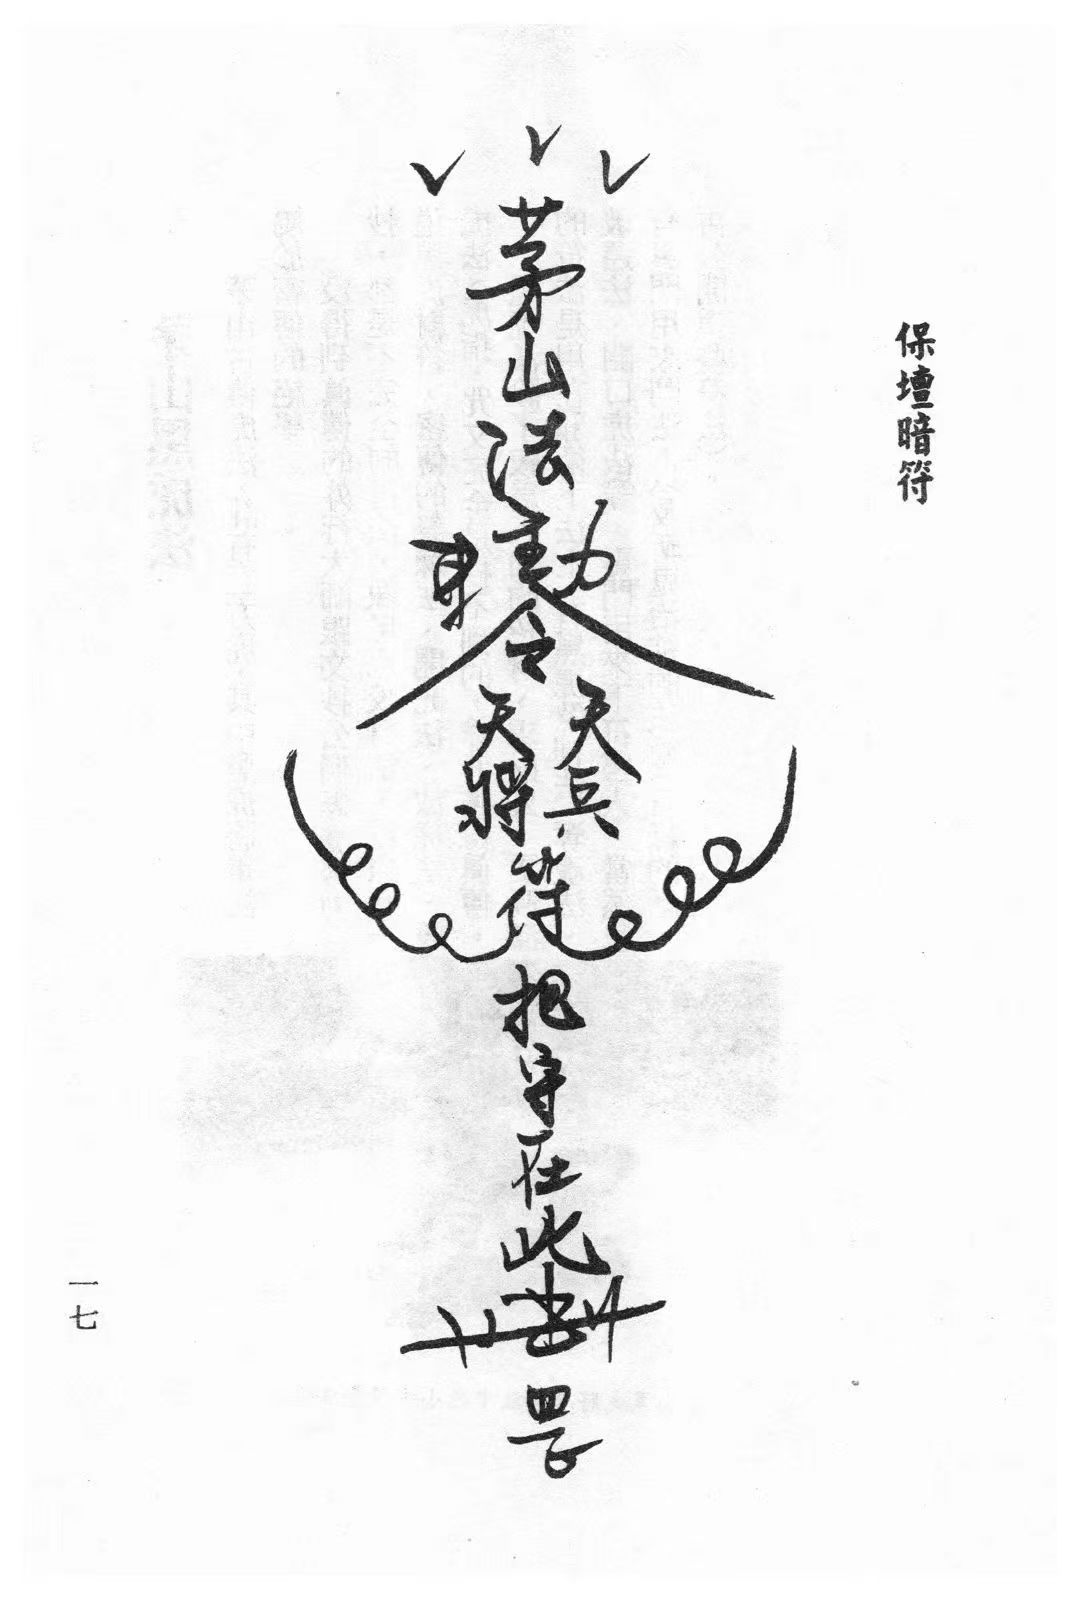 保壇暗符
茅山法主
勅令
天兵
天將
符
把守在此
罡
一七